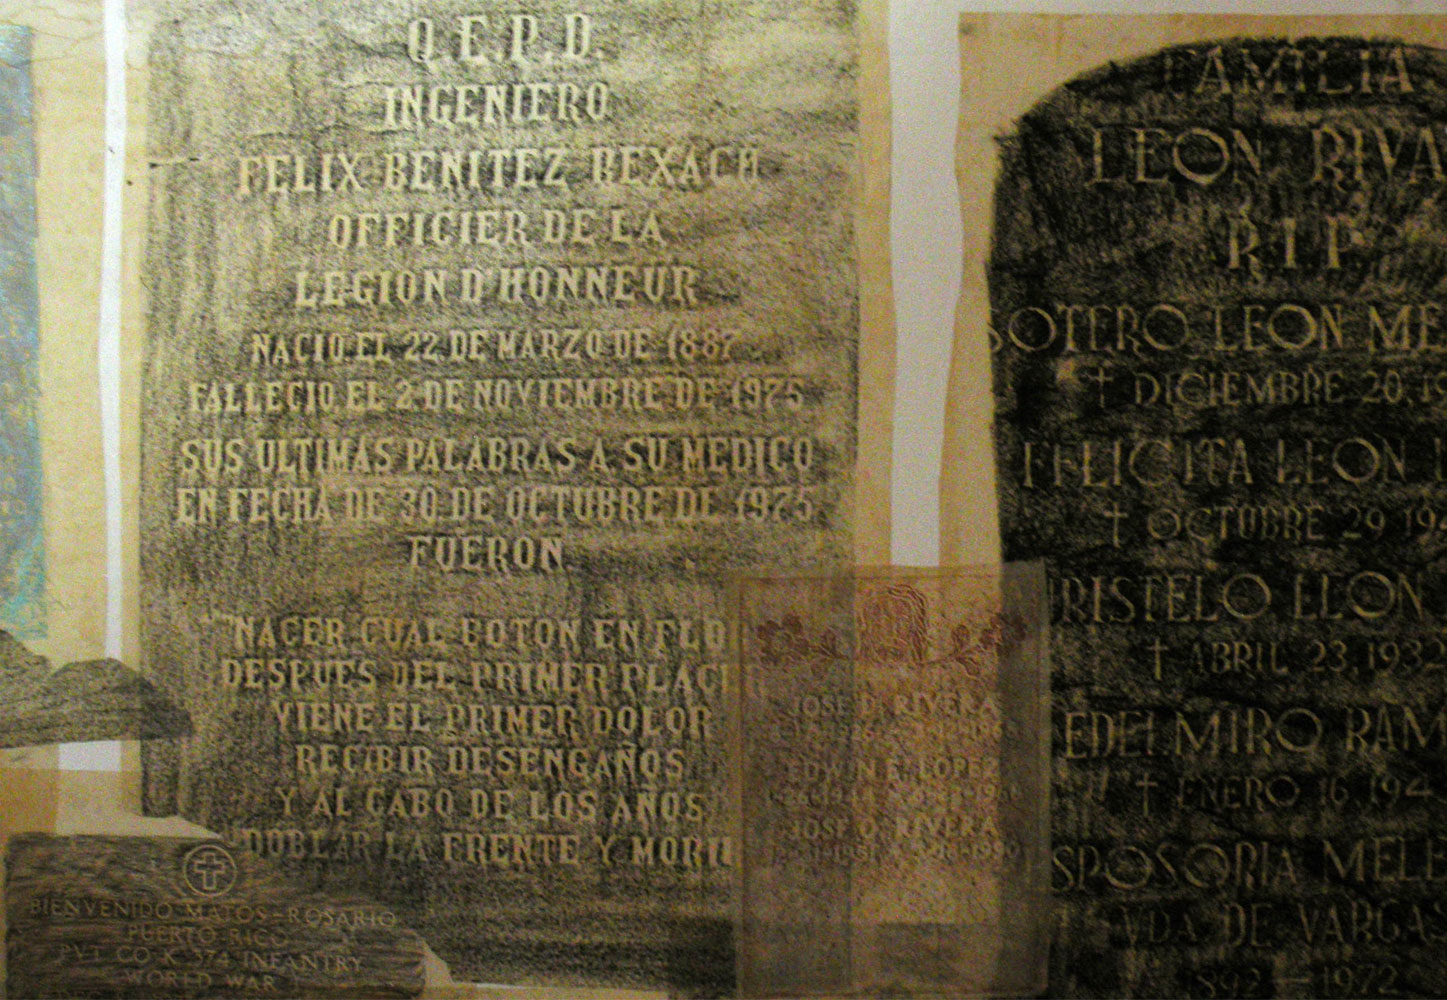 Q.E.P.D.
INGENIERO
FELIX BENITEZ REXACH
OFFICIER DE LA
LEGION D'HONNEUR
NACIO EL 22 DE MARZO DE 1887
FALLECIO EL 2 DE NOVIEMBRE DE 1975
SUS ULTIMAS PALABRAS A SU MEDICO
EN FECHA DE 30 DE OCTUBRE DE 1975
FUERON
"NACER CUAL BOTON EN FLO
DESPUES DEL PRIMER PLACE
VIENE EL PRIMER DOLOR
RECIBIR DESENGAÑOS
Y AL CABO DE LOS AÑOS
DOBLAR LA FRENTE Y MORIR
BIENVENIDO MATOS-ROSARIO
PUERTO RICO
PVT CO K 374 INFANTRY
WORLD WAR I
JOSE D. RIVERA
EDWIN E. LOPEZ
JOSE O. RIVERA
FAMILIA
LEON RIVA
RIP
SOTERO LEON ME
† DICIEMBRE 20, 19
FELICITA LEON
† OCTUBRE 29 194
RISTELO LEON
† ABRIL 23, 1932
EDELMIRO RAM
† ENERO 16, 194
SPOSORIA MELE
VDA DE VARGAS
1892 — 1972